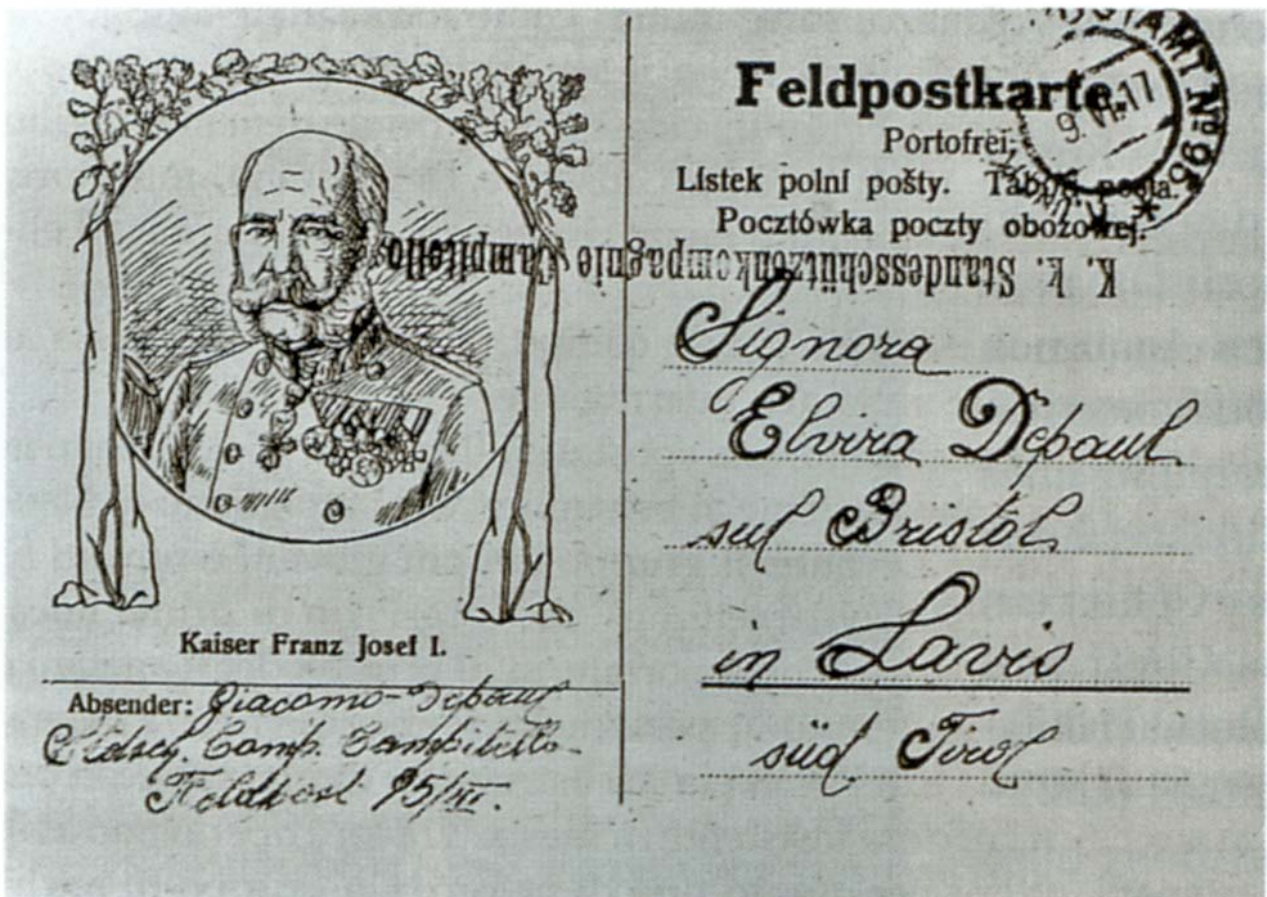 Kaiser Franz Josef I.
Absender: Giacomo Depaul
Stdsch. Comp. Campitello
Feldpost 95/III.
Feldpostkarte.
Portofrei.
Listek polní pošty. Tábori posta.
Pocztówka poczty obozowej.
K. k. Standesschützenkompagnie Campitello
Signora
Elvira Depaul
sul Bristol
in Lavis
süd Tirol
9. VI. 17
Nº 95